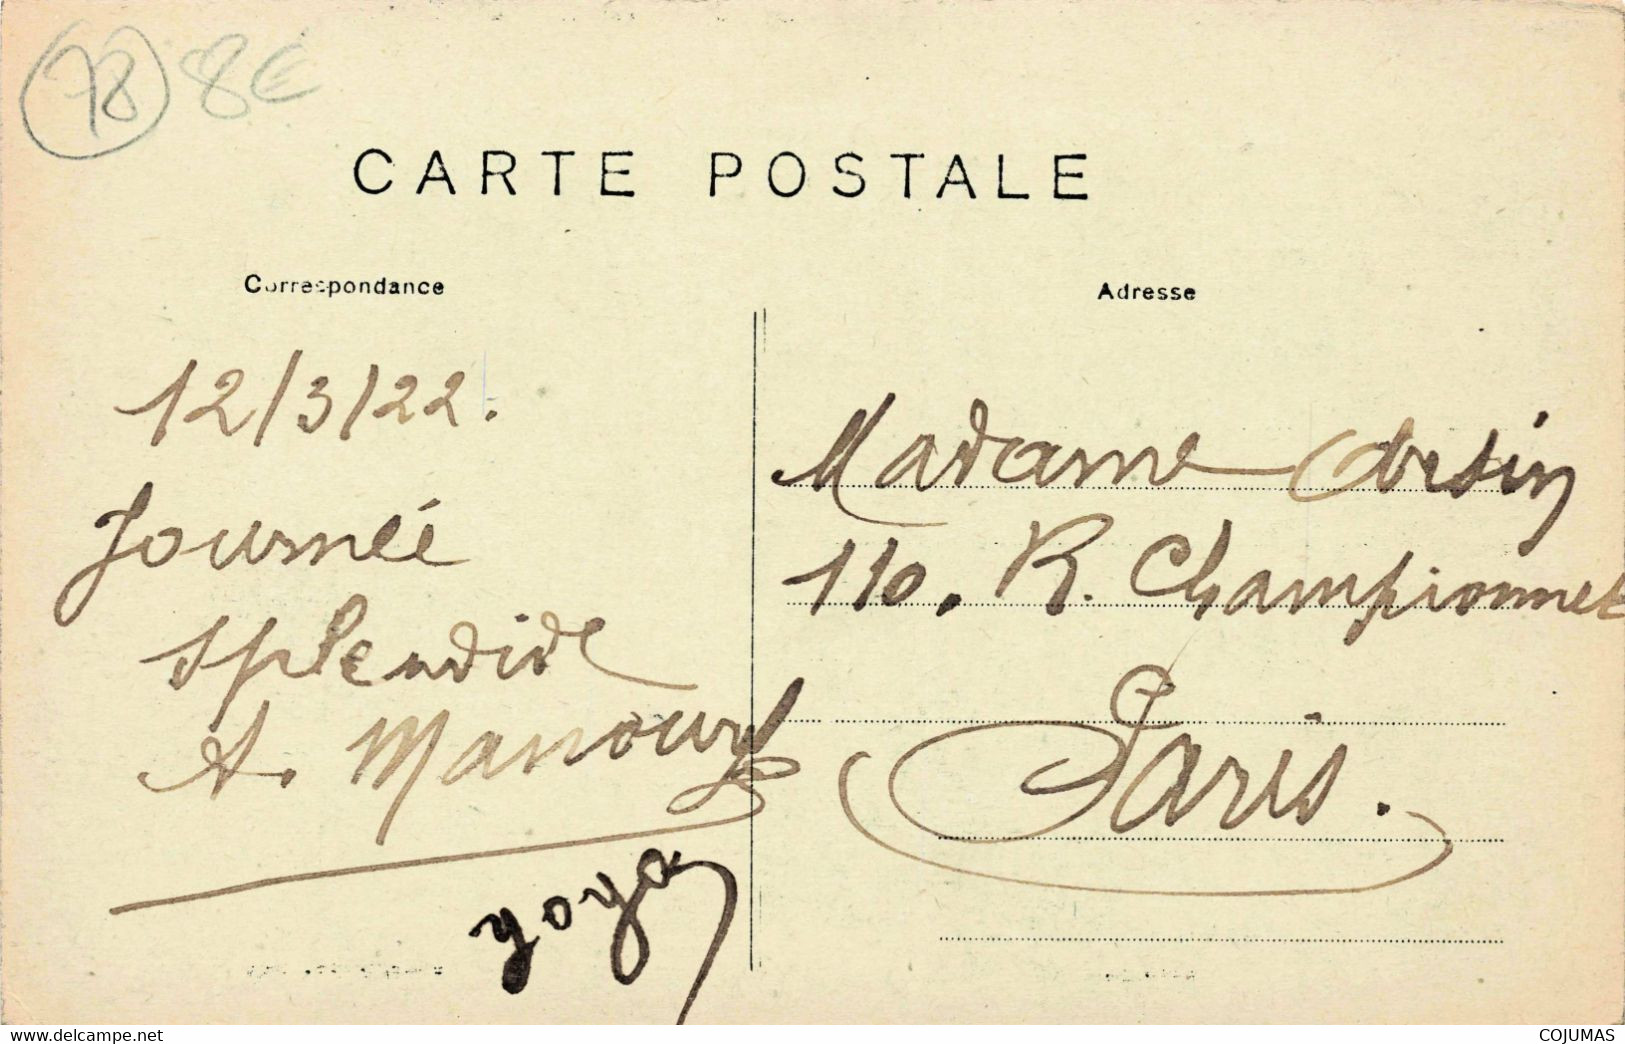 78 8€
CARTE POSTALE
Correspondance
Adresse
12/3/22.
Journée
splendide
A. Manoury
yoya
Madame
110. R. Championnet
Paris.
www.delcampe.net
COJUMAS